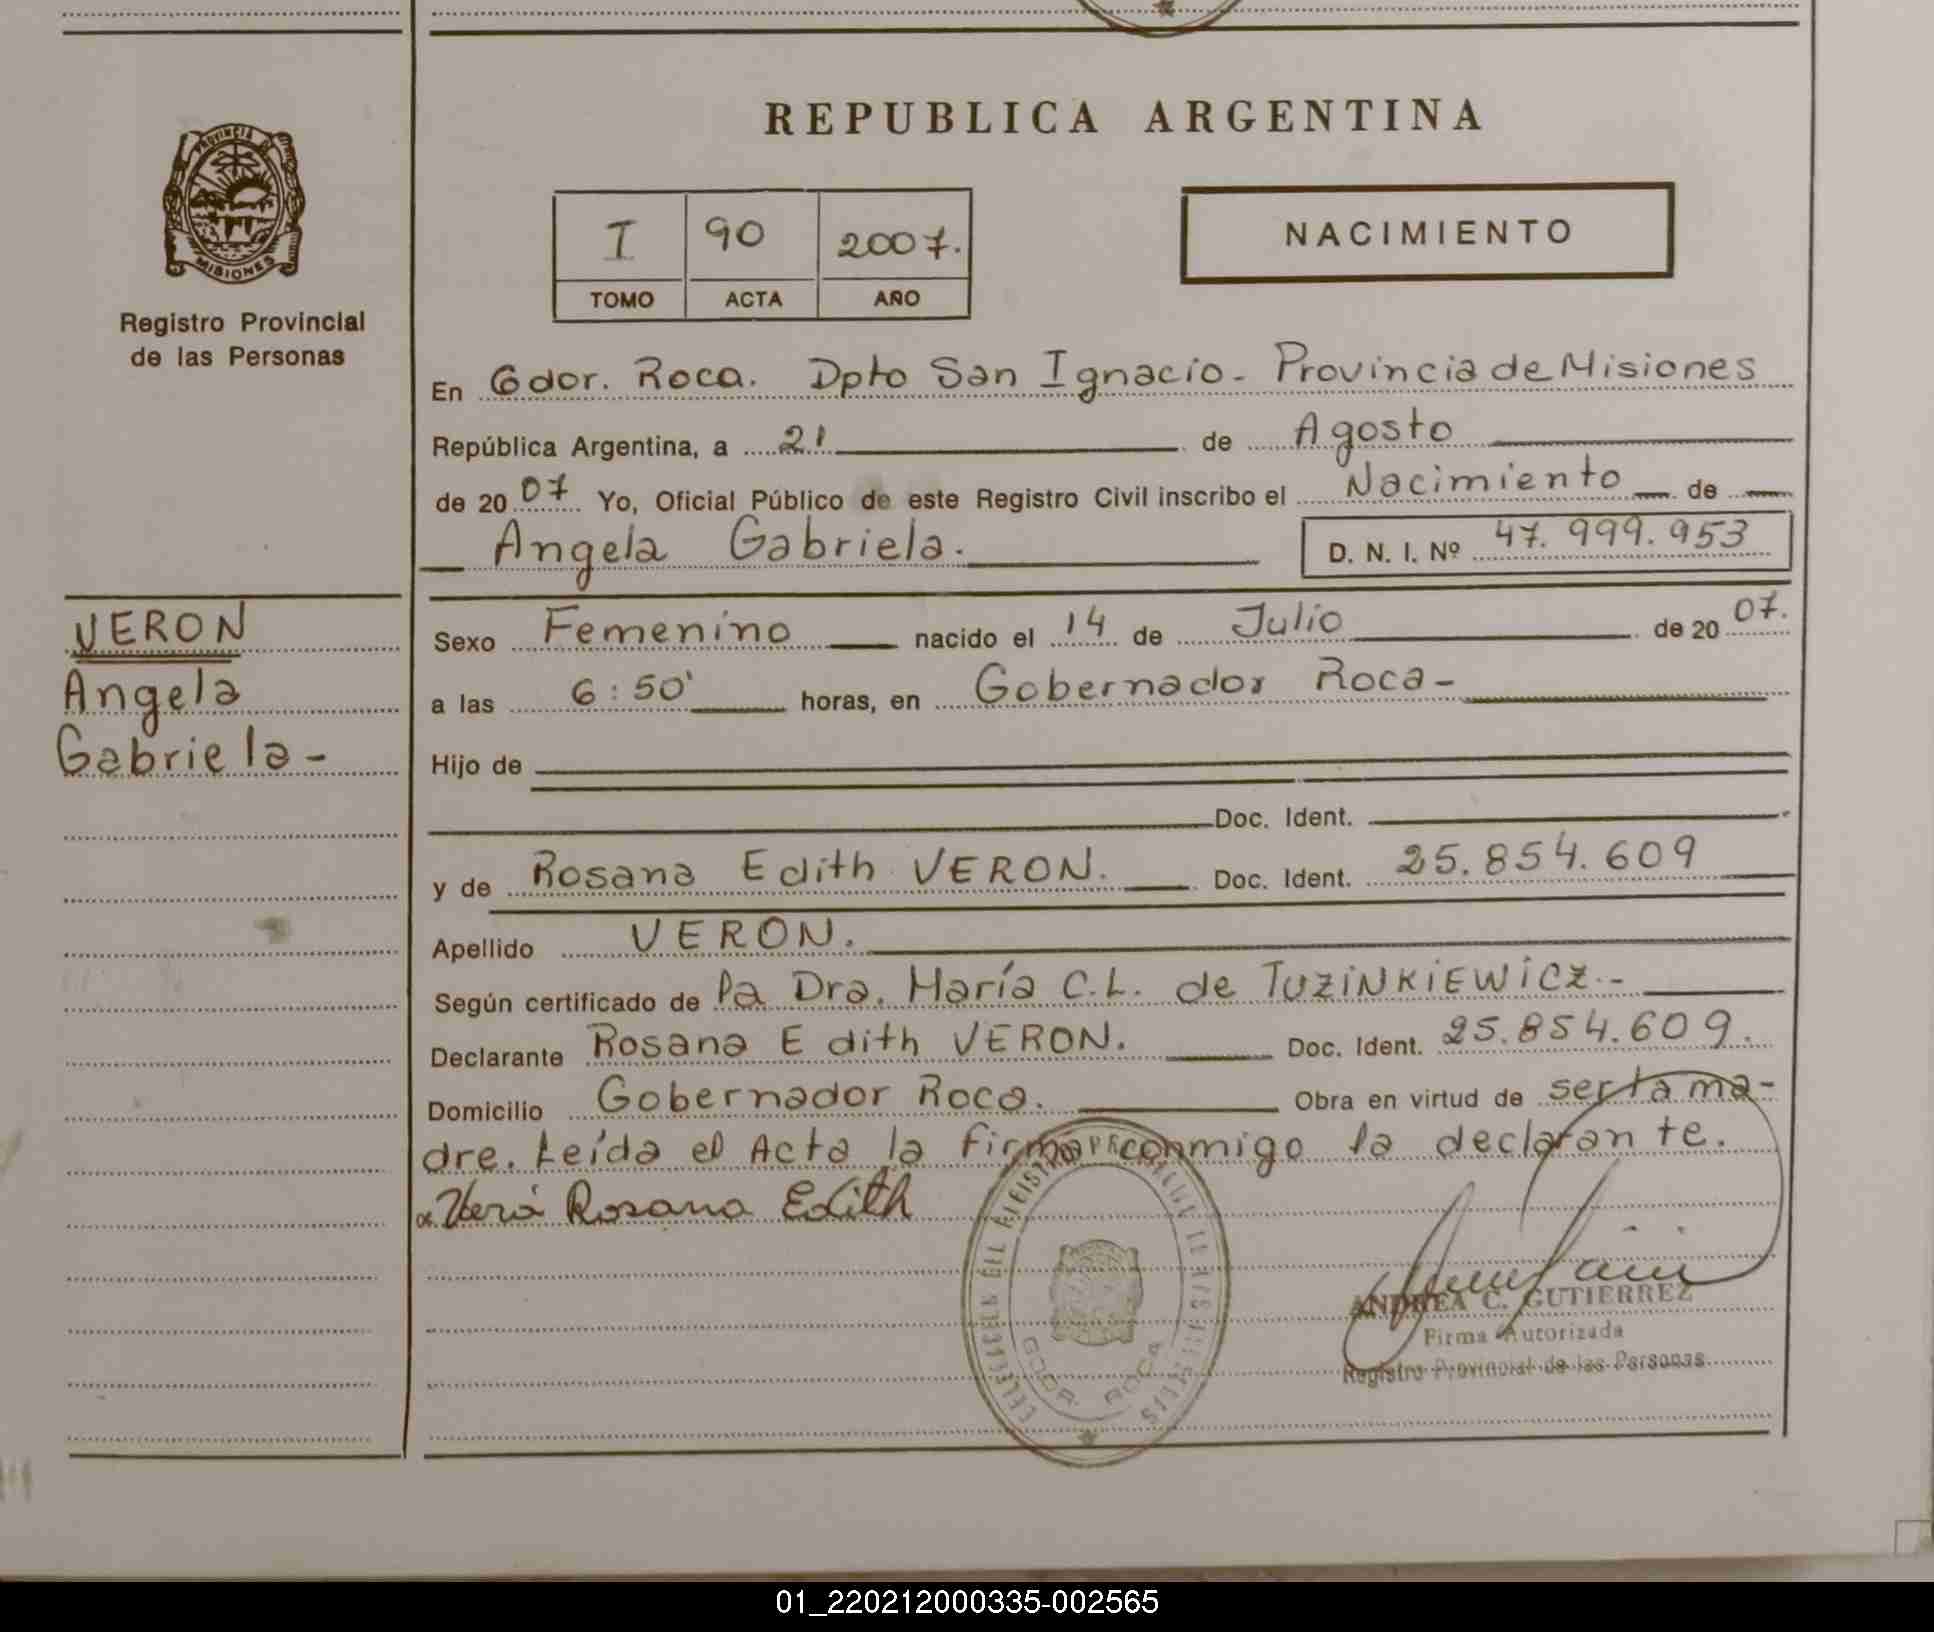 REPUBLICA ARGENTINA
PROVINCIA DE
MISIONES
Registro Provincial
de las Personas
I 90 2007.
TOMO ACTA AÑO
NACIMIENTO
En Gdor. Roca. Dpto San Ignacio - Provincia de Misiones
República Argentina, a 21 de Agosto
de 2007 Yo, Oficial Público de este Registro Civil inscribo el Nacimiento de
Angela Gabriela. D. N. I. Nº 47.999.953
VERON
Angela
Gabriela -
Sexo Femenino nacido el 14 de Julio de 2007.
a las 6:50' horas, en Gobernador Roca -
Hijo de
Doc. Ident.
y de Rosana Edith VERON. Doc. Ident. 25.854.609
Apellido VERON.
Según certificado de la Dra. María C.L. de TUZINKIEWICZ.-
Declarante Rosana Edith VERON. Doc. Ident. 25.854.609.
Domicilio Gobernador Roca. Obra en virtud de ser la ma-
dre. Leída el Acta la firma conmigo la declarante.
Rosana Edith
GDOR. ROCA
ANDREA C. GUTIERREZ
Firma Autorizada
Registro Provincial de las Personas
01_220212000335-002565